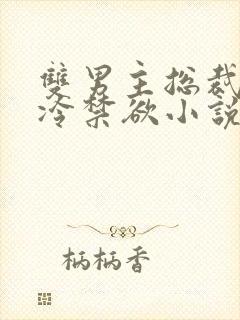 雙男主总裁
冷禁欲小説
柄柄香